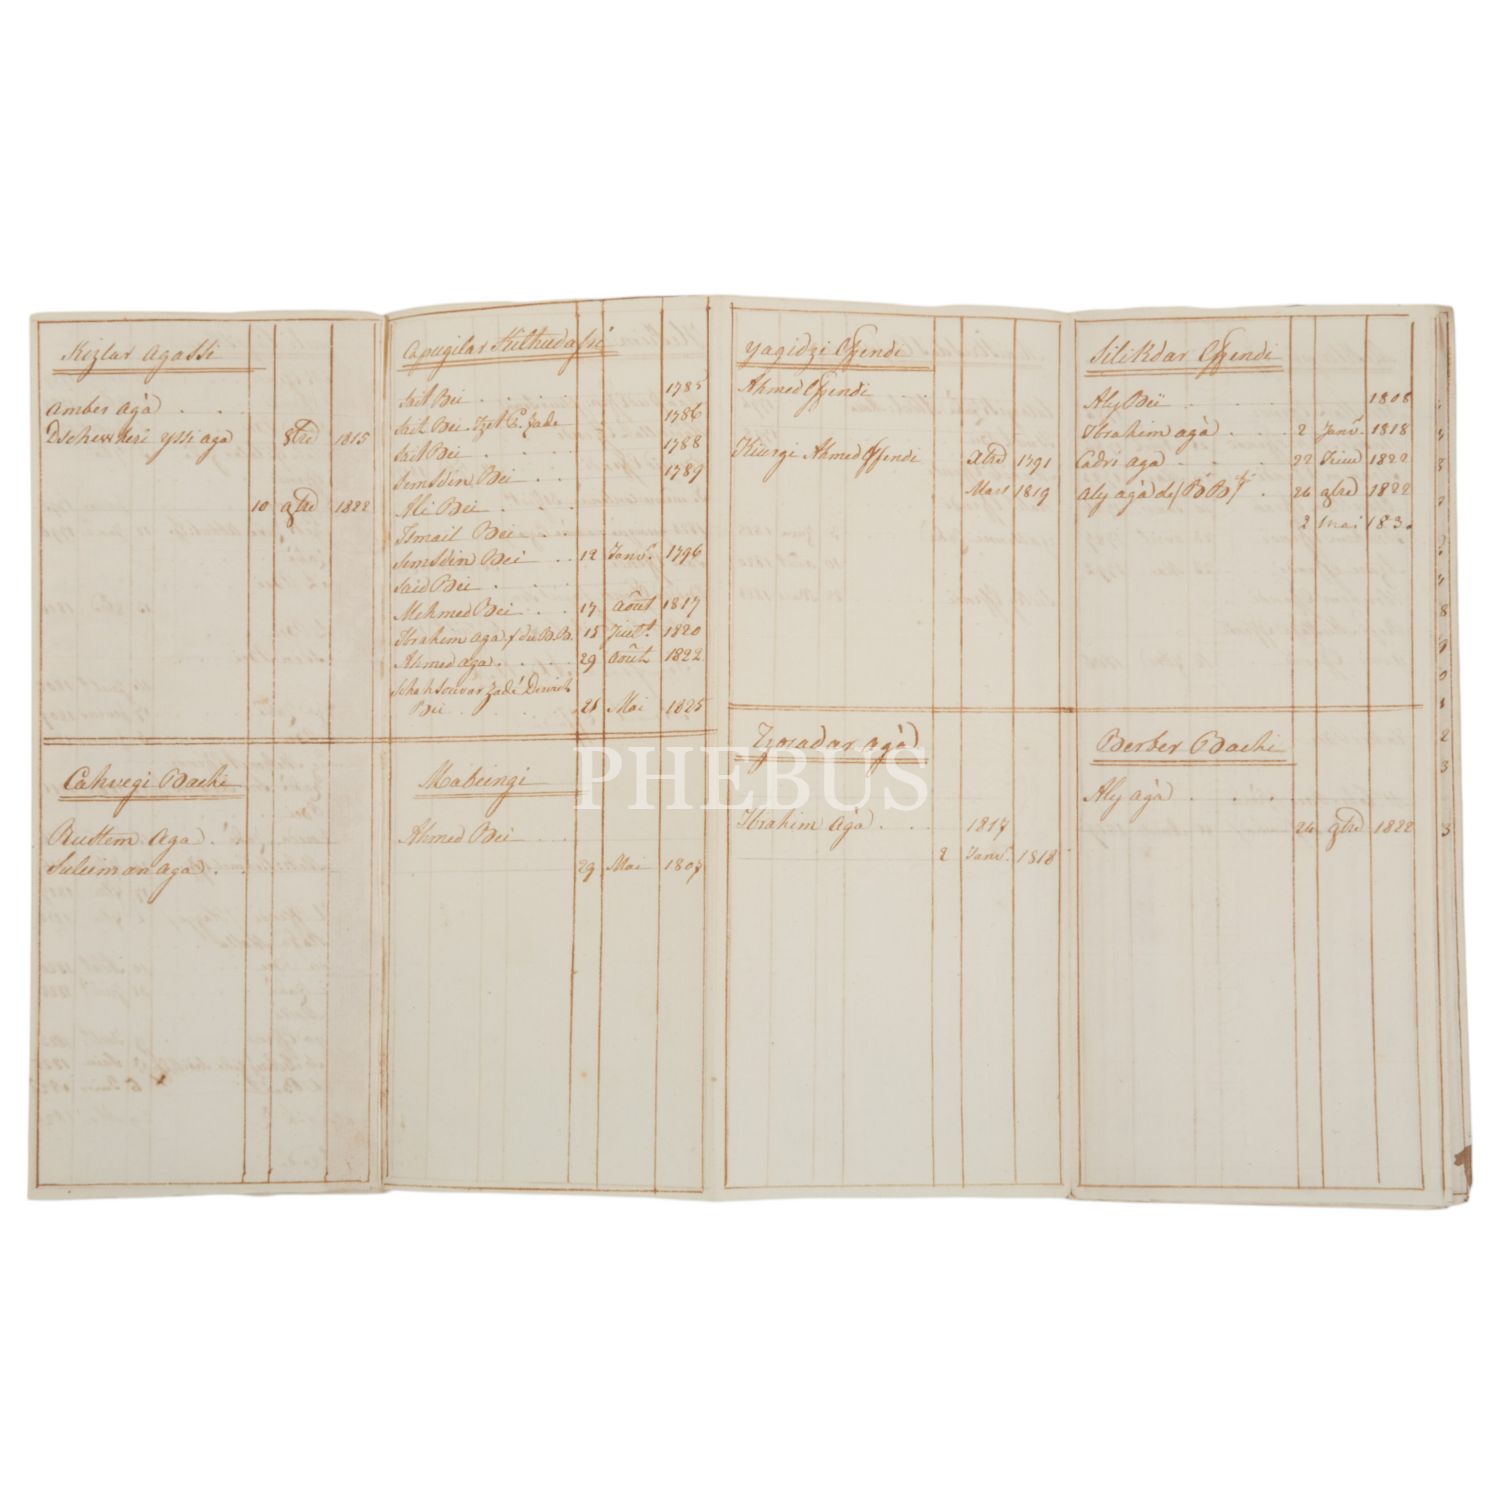 Kizlar Agassi
Amber Agà
8bre 1815
10 9bre 1822
Capugilar Kithudassi
1785
Sait Bei
1786
Sait Bei
1788
Sait Bei
1789
Semsdin Bei
Ali Bei
Ismail Bei
Semsdin Bei 12 Janv. 1796
Said Bei
Mehmed Bei 17 août 1817
Ibrahim aga du B.B. 15 Juilt. 1820
Ahmed aga 29 août 1822
Schahsouvar zadé Dervich
Bei 25 Mai 1825
Yagidzi Effendi
Ahmed Effendi
Kiurgi Ahmed Effendi Xbre 1791
Mars 1819
Silikdar Effendi
Aly Beï 1808
Ibrahim agà 2 Janv. 1818
Cadri aga 22 Juin 1822
Aly agà de B.B. 26 9bre 1822
2 Mai 1830
Cahvegi Bachi
Rustem Aga
Suleiman aga
Mabeingi
Ahmed Bei
29 Mai 1807
Tzocadar agà
Ibrahim Agà 1817
2 Janv. 1818
Berber Bachi
Aly agà
26 9bre 1822
PHEBUS